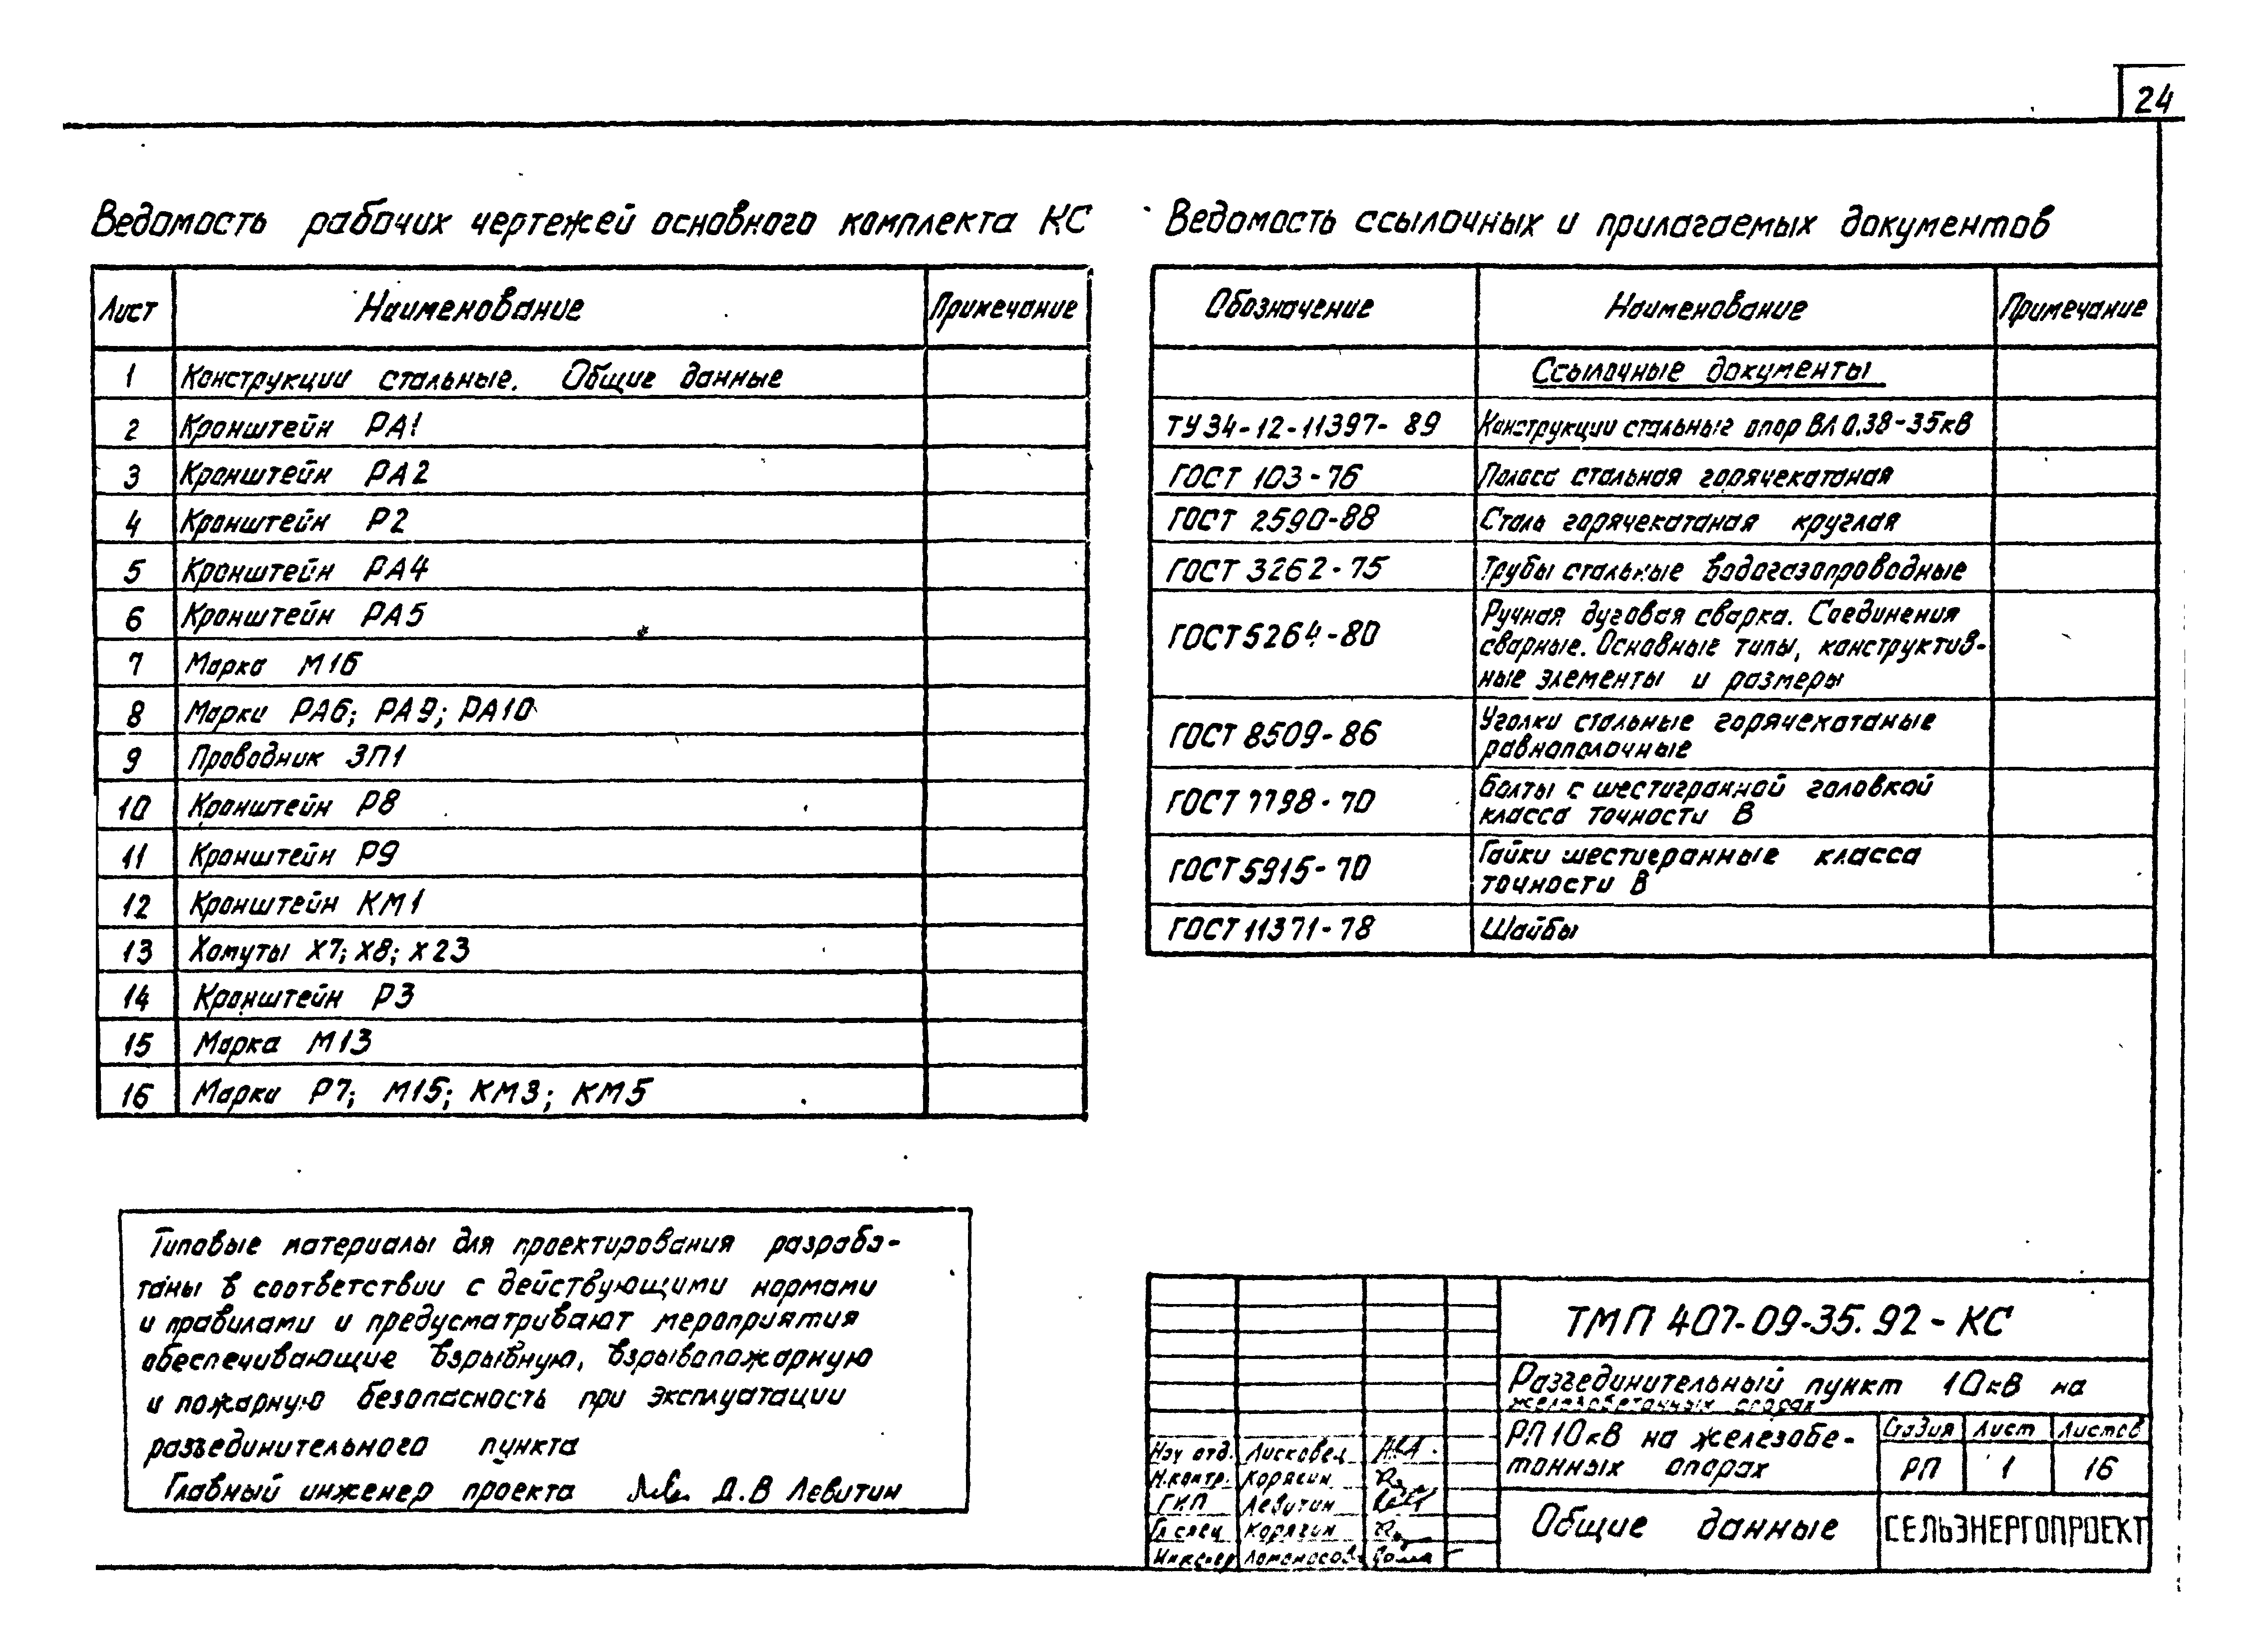 24
Ведомость рабочих чертежей основного комплекта КС
Лист Наименование Примечание
1 Конструкции стальные. Общие данные
2 Кронштейн РА1
3 Кронштейн РА2
4 Кронштейн Р2
5 Кронштейн РА4
6 Кронштейн РА5
7 Марка М16
8 Марки РА6; РА9; РА10
9 Проводник ЗП1
10 Кронштейн Р8
11 Кронштейн Р9
12 Кронштейн КМ1
13 Хомуты Х7; Х8; Х23
14 Кронштейн Р3
15 Марка М13
16 Марки Р7; М15; КМ3; КМ5
Ведомость ссылочных и прилагаемых документов
Обозначение Наименование Примечание
Ссылочные документы
ТУ 34-12-11397-89 Конструкции стальные опор ВЛ 0.38-35кВ
ГОСТ 103-76 Полоса стальная горячекатаная
ГОСТ 2590-88 Сталь горячекатаная круглая
ГОСТ 3262-75 Трубы стальные водогазопроводные
ГОСТ 5264-80 Ручная дуговая сварка. Соединения
сварные. Основные типы, конструктив-
ные элементы и размеры
ГОСТ 8509-86 Уголки стальные горячекатаные
равнополочные
ГОСТ 7798-70 Болты с шестигранной головкой
класса точности В
ГОСТ 5915-70 Гайки шестигранные класса
точности В
ГОСТ 11371-78 Шайбы
Типовые материалы для проектирования разрабо-
таны в соответствии с действующими нормами
и правилами и предусматривают мероприятия
обеспечивающие взрывную, взрывопожарную
и пожарную безопасность при эксплуатации
разъединительного пункта
Главный инженер проекта Д.В Левитин
ТМП 407-09-35.92-КС
Разъединительный пункт 10кВ на
железобетонных опорах
РП 10кВ на железобе-
тонных опорах
Стадия Лист Листов
РП 1 16
Общие данные
СЕЛЬЭНЕРГОПРОЕКТ
Нач отд. Лисковец
Н.контр. Корягин
ГИП Левитин
Гл спец Корягин
Инженер Ломоносов